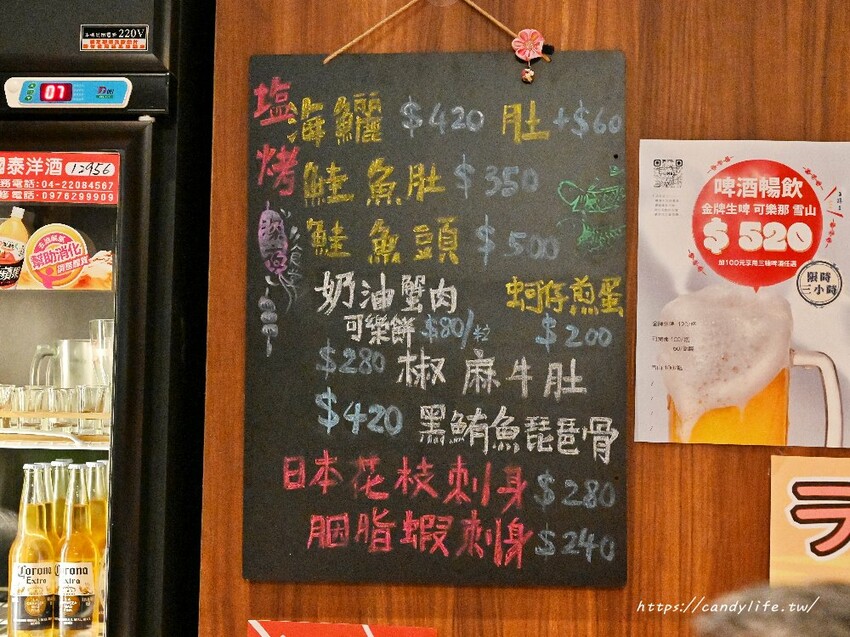 220V
07
泰洋酒 12956
務電話:04-22084567
修電話:0976299909
幫助消化
塩烤
海鱺 $420 肚+$60
鮭魚肚 $350
鮭魚頭 $500
奶油蟹肉可樂餅 $80/粒
蚵仔煎蛋 $200
$280 椒麻牛肚
$420 黑鮪魚琵琶骨
日本花枝刺身 $280
胭脂蝦刺身 $240
啤酒暢飲
金牌生啤 可樂那 雪山
$520
加100元享用三種啤酒任選
限時三小時
ラ
Corona
Extra
Corona
Extra
https://candylife.tw/